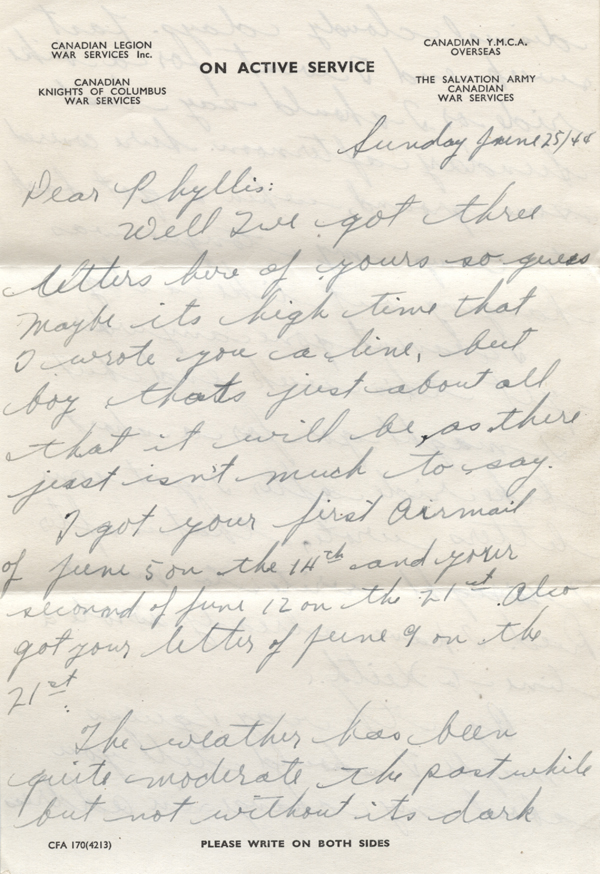 CANADIAN LEGION
WAR SERVICES Inc.
CANADIAN
KNIGHTS OF COLUMBUS
WAR SERVICES
ON ACTIVE SERVICE
CANADIAN Y.M.C.A.
OVERSEAS
THE SALVATION ARMY
CANADIAN
WAR SERVICES
Sunday June 25/44
Dear Phyllis:
Well I've got three
letters here of yours so guess
maybe its high time that
I wrote you a line, but
boy thats just about all
that it will be, as there
just isn't much to say.
I got your first Airmail
of June 5 on the 14th and your
second of June 12 on the 21st. Also
got your letter of June 9 on the
21st.
The weather has been
quite moderate the past while
but not without its dark
CFA 170(4213)
PLEASE WRITE ON BOTH SIDES